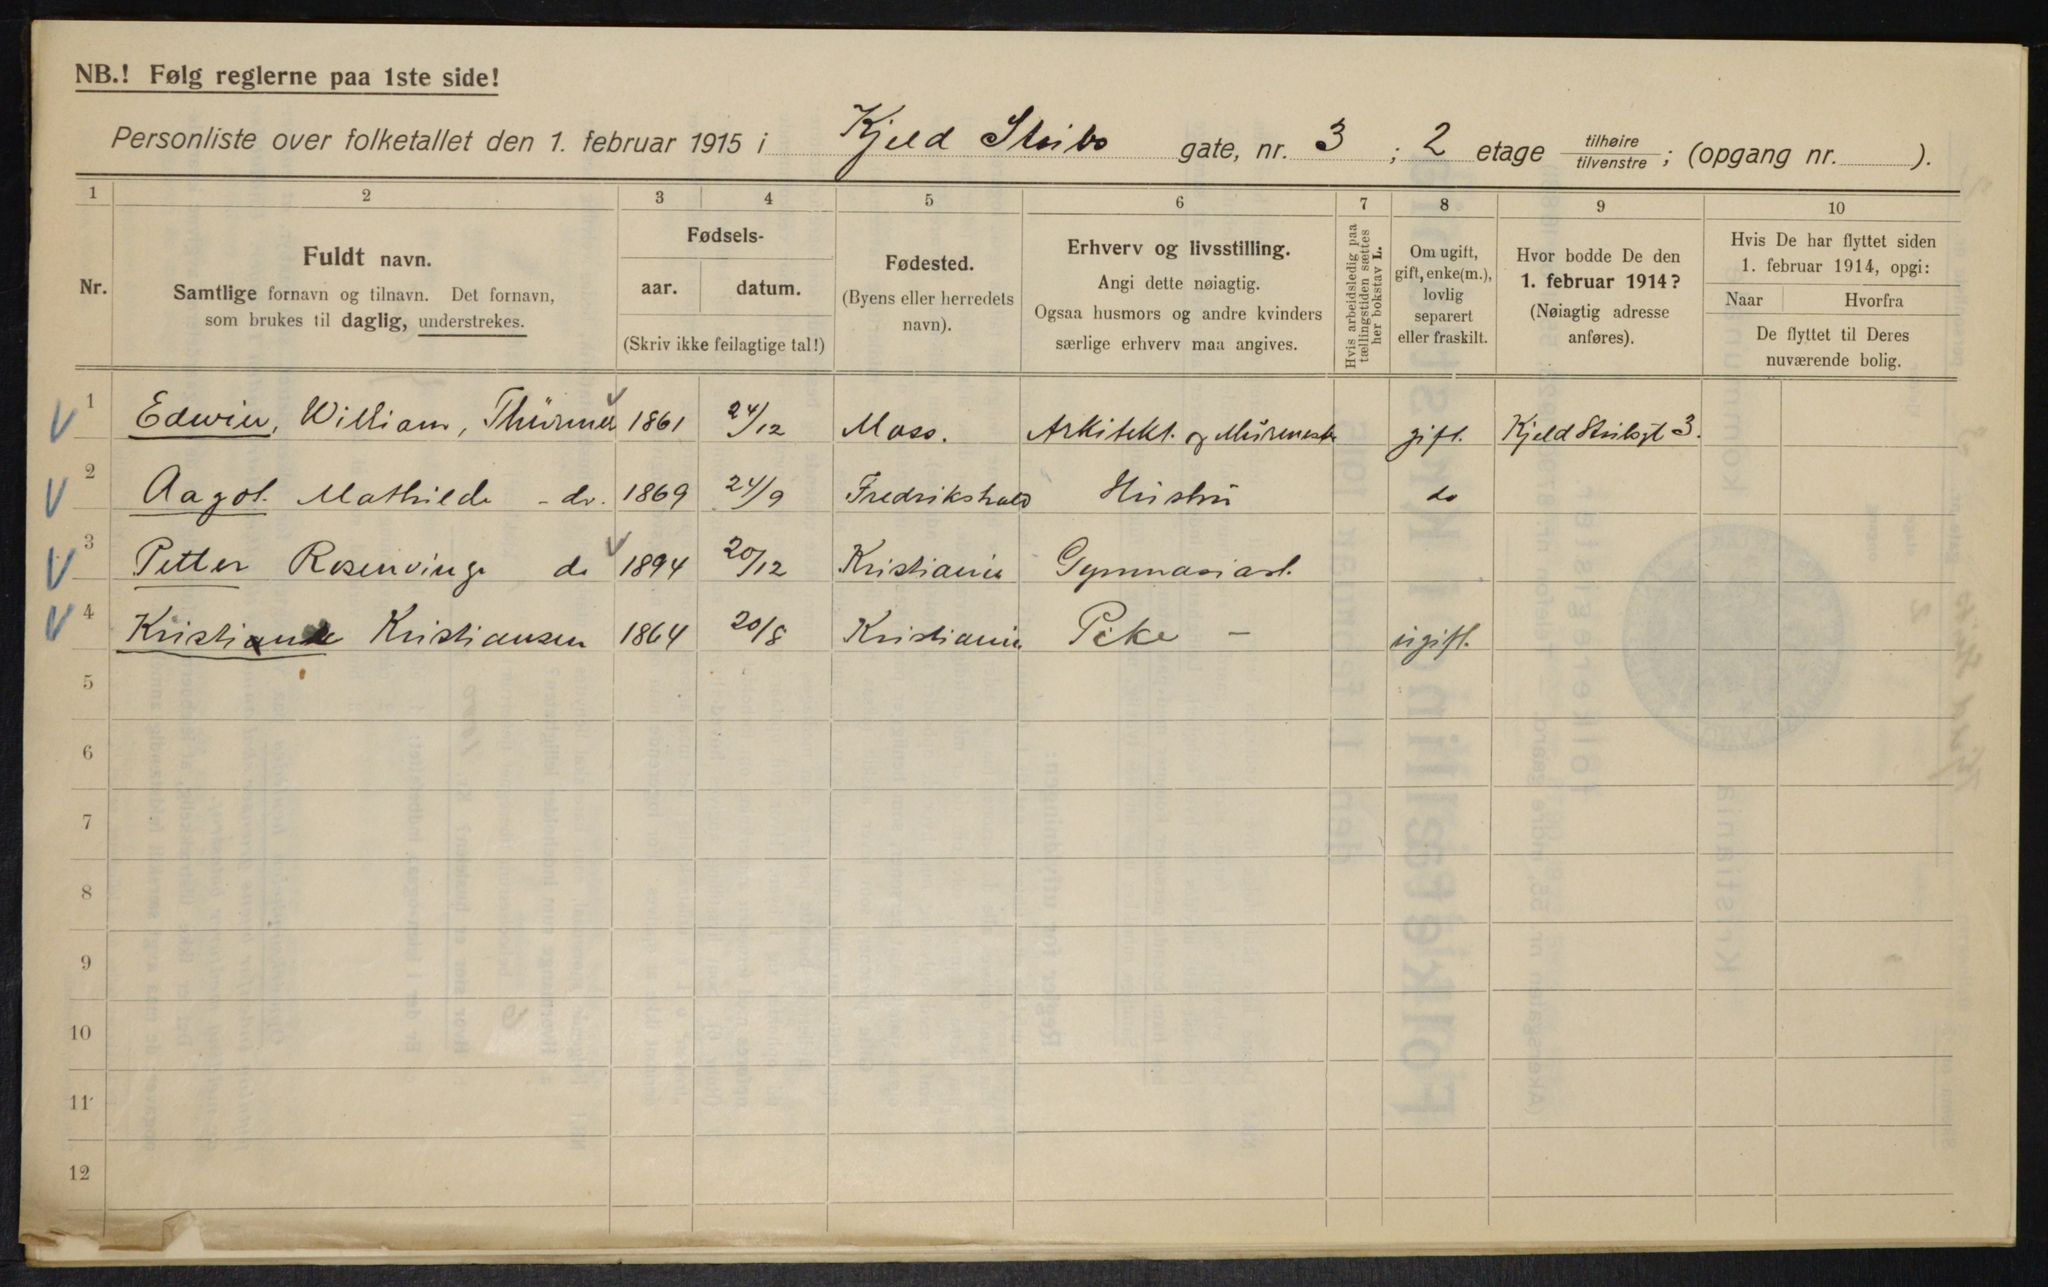 NB.! Følg reglerne paa 1ste side!
Personliste over folketallet den 1. februar 1915 i Kjeld Stubs gate, nr. 3 ; 2 etage tilhøire / tilvenstre ; (opgang nr. ).
1 2 3 4 5 6 7 8 9 10
Nr.
Fuldt navn.
Samtlige fornavn og tilnavn. Det fornavn,
som brukes til daglig, understrekes.
Fødsels-
aar. datum.
(Skriv ikke feilagtige tal!)
Fødested.
(Byens eller herredets
navn).
Erhverv og livsstilling.
Angi dette nøiagtig.
Ogsaa husmors og andre kvinders
særlige erhverv maa angives.
Hvis arbeidsledig paa
tællingstiden sættes
her bokstav L.
Om ugift,
gift, enke(m.),
lovlig
separert
eller fraskilt.
Hvor bodde De den
1. februar 1914?
(Nøiagtig adresse
anføres).
Hvis De har flyttet siden
1. februar 1914, opgi:
Naar Hvorfra
De flyttet til Deres
nuværende bolig.
1 Edwin, William, Thürmer 1861 24/12 Moss. Arkitekt. og Mürmester gift. Kjeld Stubsgt 3.
2 Aagot. Mathilde - do. 1869 24/9 Fredrikshald Hustrü do
3 Petter Rosenvinge do 1894 20/12 Kristiania Gymnasiast.
4 Kristiane Kristiansen 1864 20/8 Kristiania Pike - ugift.
5
6
7
8
9
10
11
12